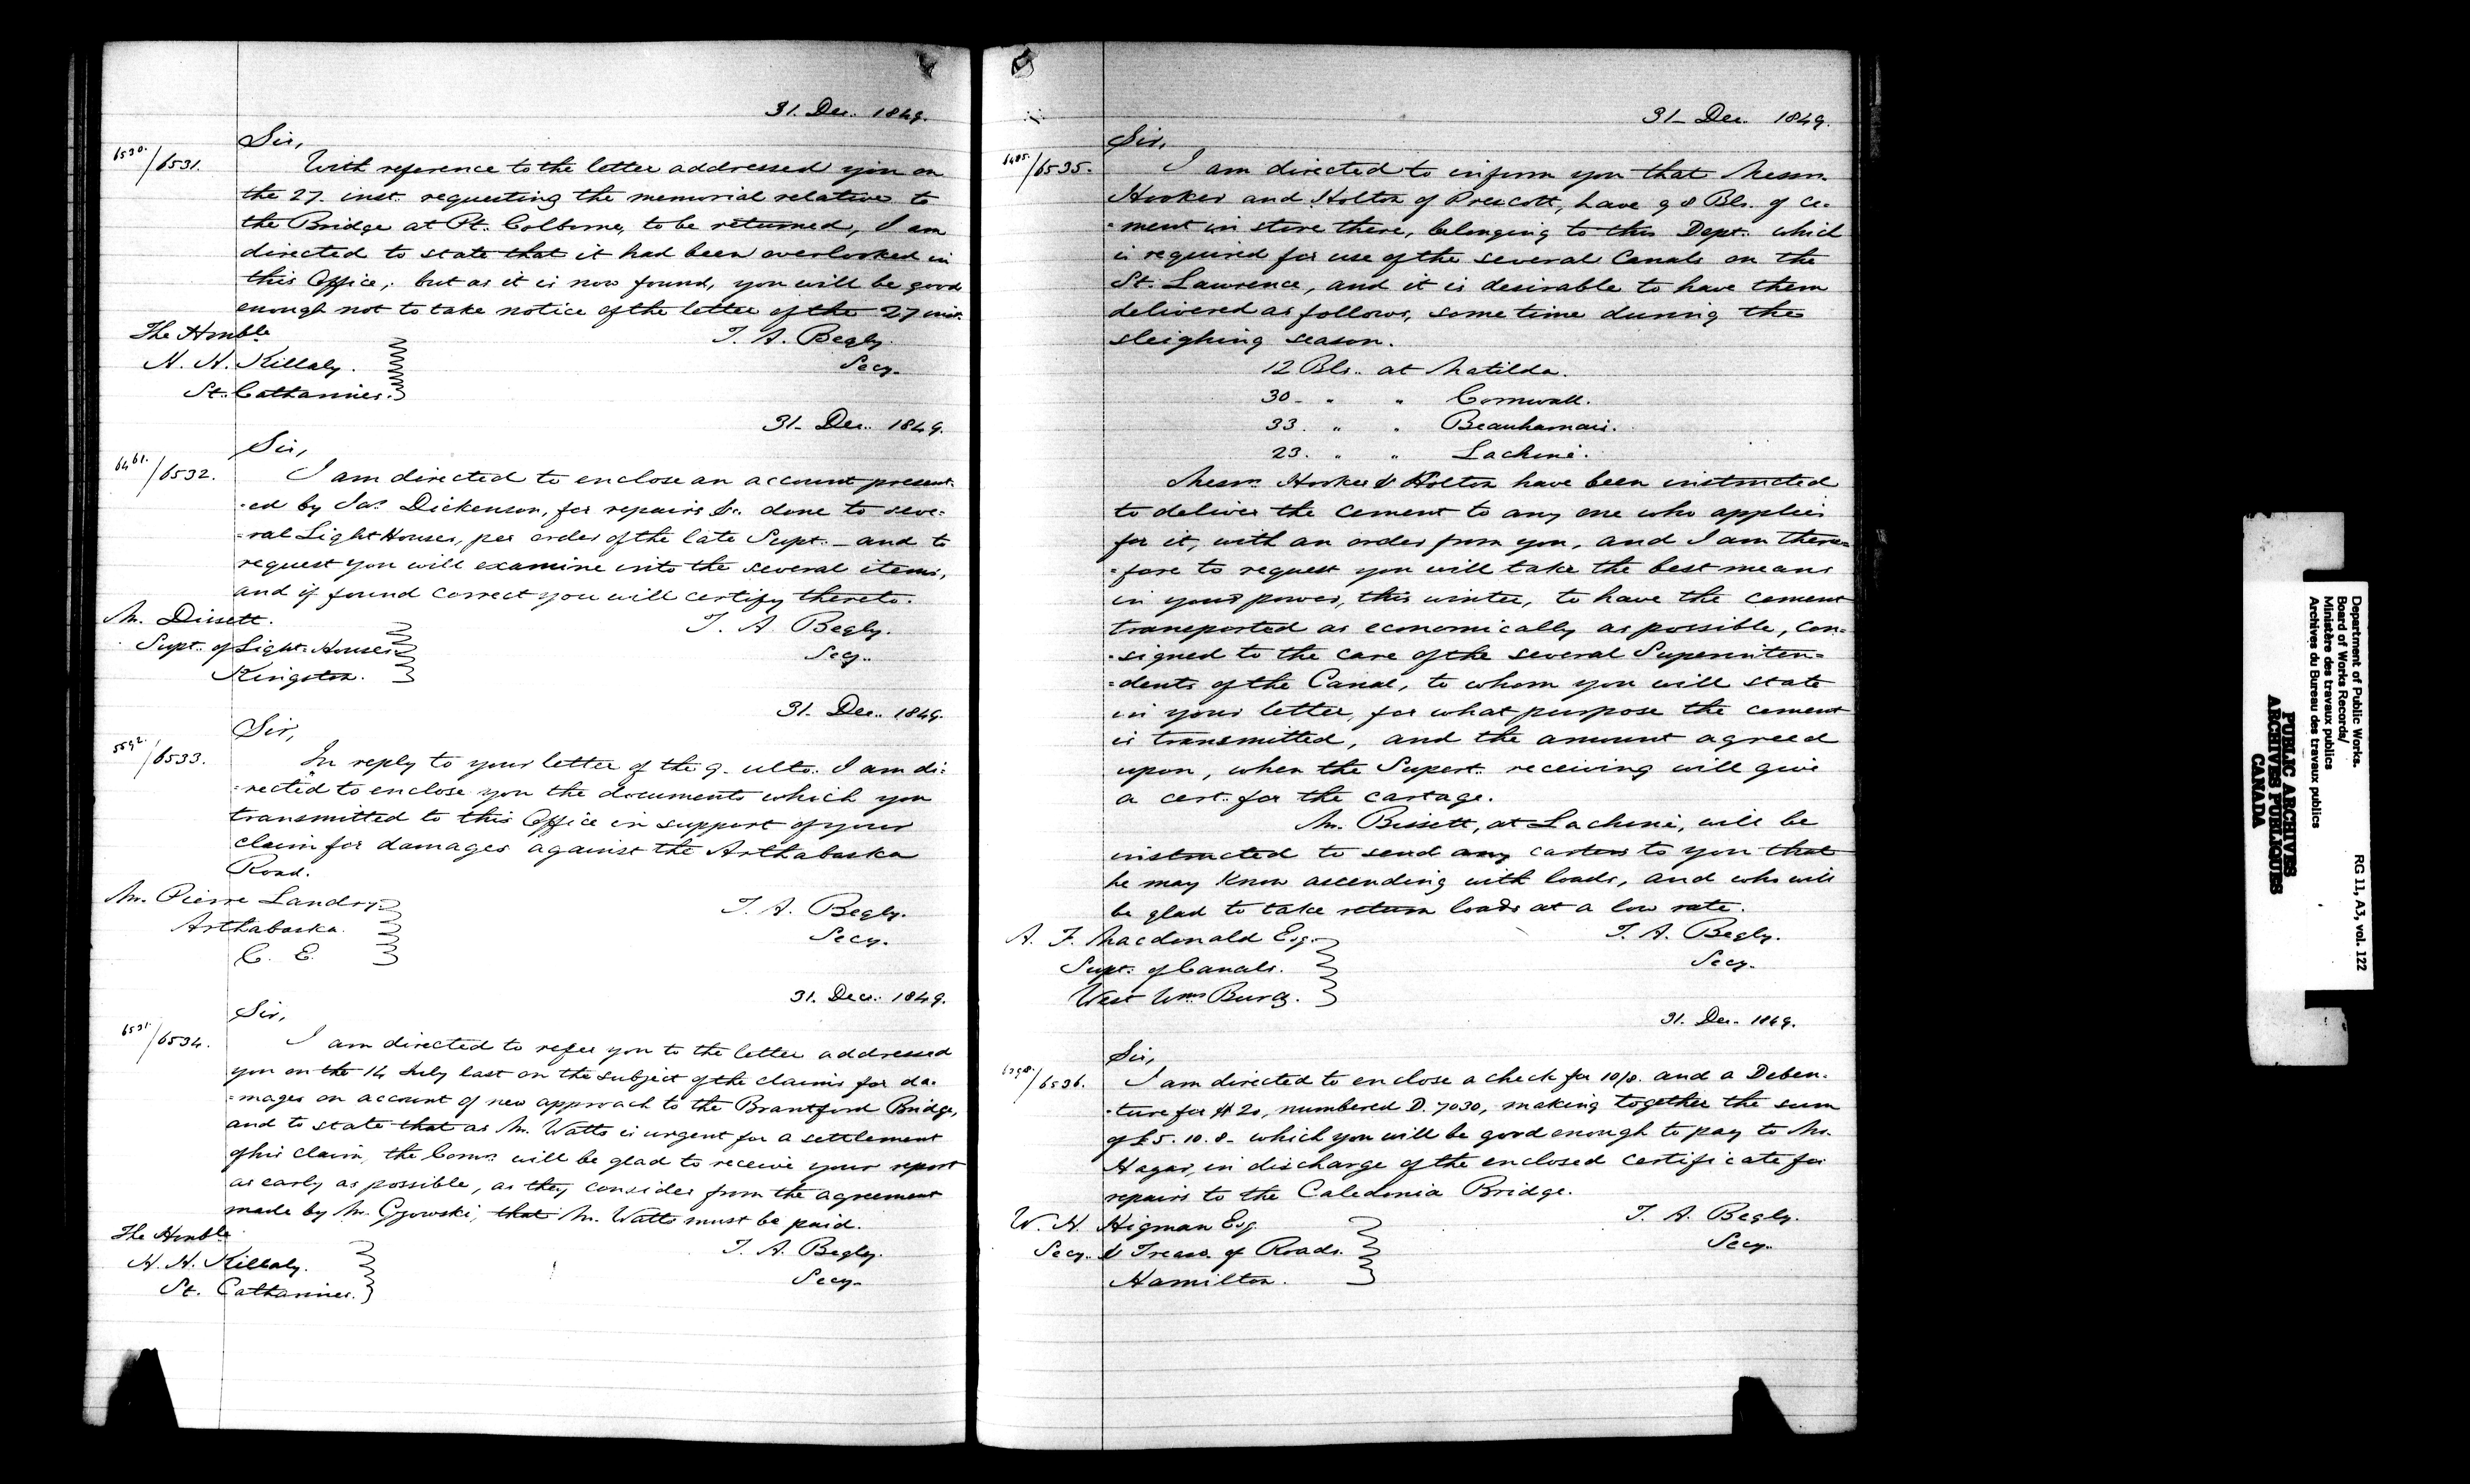 31. Dec. 1849.
Sir,
6530./6531. With reference to the letter addressed you on
the 27. inst. requesting the memorial relative to
the Bridge at Pt. Colborne, to be returned, I am
directed to state that it had been overlooked in
this Office; but as it is now found, you will be good
enough not to take notice of the letter of the 27 inst.
The Honble. T. A. Begly.
H. H. Killaly. Secy.
St. Catharines.
31- Dec. 1849.
Sir,
6461./6532. I am directed to enclose an account present-
-ed by Jas. Dickenson, for repairs &c. done to seve=
=ral Light Houses, per order of the late Supt. - and to
request you will examine into the several items,
and if found correct you will certify thereto.
Mr. T. A. Begly.
Supt. of Light-Houses Secy.
Kingston.
31- Dec. 1849.
Sir,
5592./6533. In reply to your letter of the 9- ulto. I am di=
-rected to enclose you the documents which you
transmitted to this Office in support of your
claim for damages against the Arthabaska
Road.
Mr. Pierre Landry T. A. Begly.
Arthabaska. Secy.
C. E.
31. Dec. 1849.
Sir,
6531./6534. I am directed to refer you to the letter addressed
you on the 14 July last on the subject of the claims for da=
=mages on account of new approach to the Brantford Bridge,
and to state that as Mr. Watts is urgent for a settlement
of his claim, the Comrs. will be glad to receive your report
as early as possible, as they consider from the agreement
made by Mr. Gzowski, that Mr. Watts must be paid.
The Honble. T. A. Begly.
H. H. Killaly. Secy.
St. Catharines.
31- Dec. 1849.
Sir,
6485./6535. I am directed to inform you that Messrs.
Hooker and Holton of Prescott, have 98 Bls. of Ce-
-ment in store there, belonging to this Dept. which
is required for use of the several Canals on the
St. Lawrence, and it is desirable to have them
delivered as follows, some time during the
sleighing season.
12 Bls. at Matilda.
30- " " Cornwall.
33. " " Beauharnais.
23. " " Lachine.
Messrs. Hooker & Holton have been instructed
to deliver the cement to any one who applies
for it, with an order from you, and I am there=
=fore to request you will take the best means
in your power, this winter, to have the cement
transported as economically as possible, con=
-signed to the care of the several Superinten=
=dents of the Canal, to whom you will state
in your letter, for what purpose the cement
is transmitted, and the amount agreed
upon, when the Supert. receiving will give
a cert. for the cartage.
Mr. Bissett, at Lachine, will be
instructed to send any carters to you that
he may know ascending with loads, and who will
be glad to take return loads at a low rate.
A. F. Macdonald Esq. T. A. Begly.
Supt. of Canals. Secy.
West Wms Burg.
31. Dec. 1849.
Sir,
/6536. I am directed to enclose a check for 10/8. and a Deben-
-ture for $20, numbered D. 7030, making together the sum
of £5. 10. 8- which you will be good enough to pay to Mr.
Hagar, in discharge of the enclosed certificate for
repairs to the Caledonia Bridge.
W. H. Higman Esq. T. A. Begly.
Secy. & Treasr. of Roads. Secy.
Hamilton.
Department of Public Works.
Board of Works Records/
Ministère des travaux publics
Archives du Bureau des travaux publics
RG 11, A3, vol. 122
PUBLIC ARCHIVES
ARCHIVES PUBLIQUES
CANADA